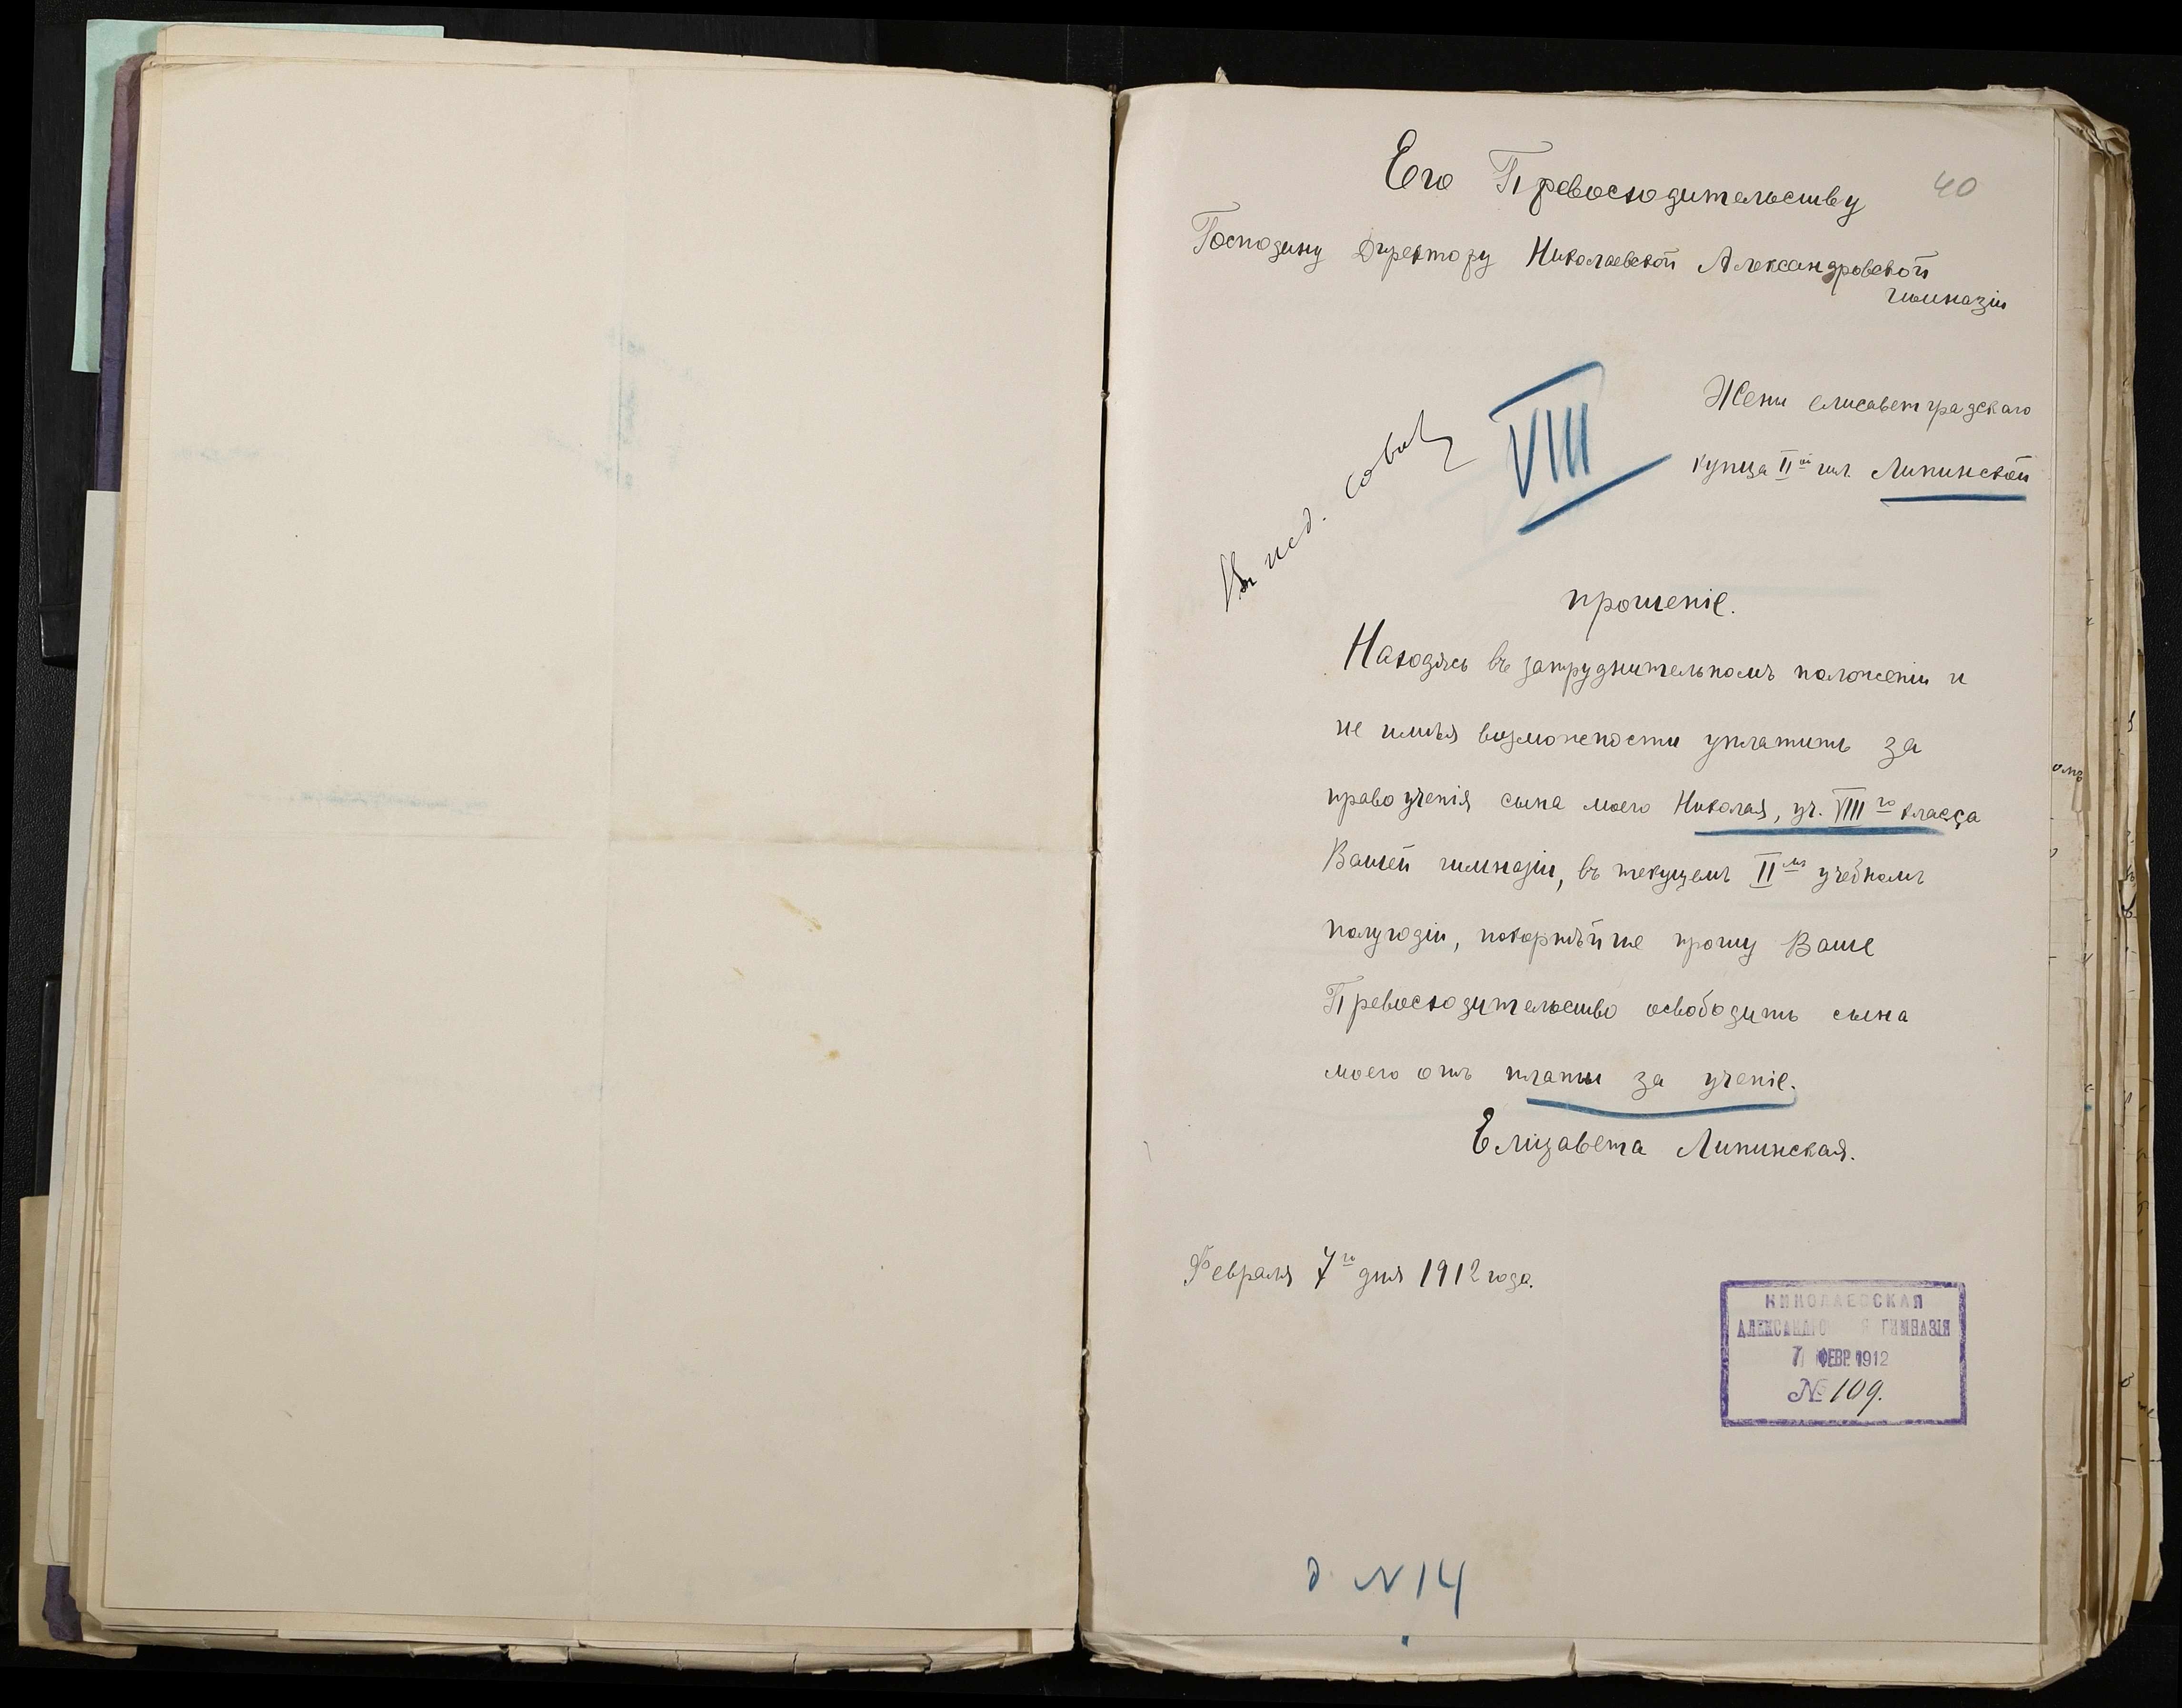 40
Его Превосходительству
Господину Директору Николаевской Александровской
гимназіи
Жены елисаветградскаго
купца II ой гил. Липинской
VIII
Въ пед. совѣт
прошеніе.
Находясь въ затруднительномъ положеніи и
не имѣя возможности уплатить за
право ученія сына моего Николая, уч. VIII го класса
Вашей гимназіи, въ текущемъ II мъ учебномъ
полугодіи, покорнѣйше прошу Ваше
Превосходительство освободить сына
моего отъ платы за ученіе.
Елизавета Липинская.
Февраля 7 го дня 1912 года.
НИКОЛАЕВСКАЯ
ГИМНАЗІЯ
7 ФЕВР. 1912
№ 109.
д. N 14